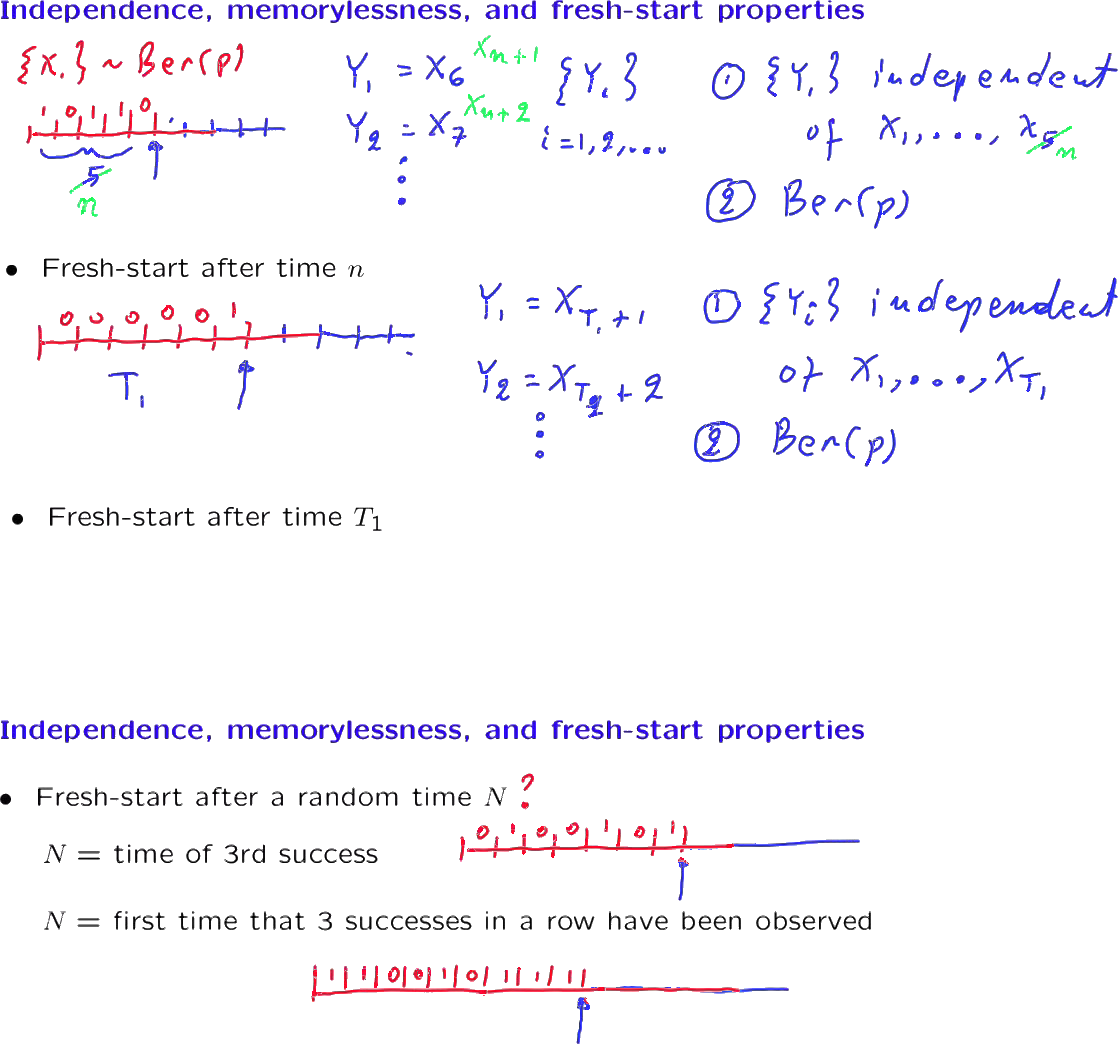 Independence, memorylessness, and fresh-start properties
{X.} ~ Ber(p)
1 0 1 1 0
5 n
Y₁ = X₆ Xₙ₊₁
Y₂ = X₇ Xₙ₊₂
⋮
{Yᵢ}
i = 1, 2, ...
① {Y.} independent
of X₁, ..., X₅ n
② Ber(p)
• Fresh-start after time n
0 0 0 0 0 1
T₁
Y₁ = X_{T₁+1}
Y₂ = X_{T₂+2}
⋮
① {Yᵢ} independent
of X₁, ..., X_{T₁}
② Ber(p)
• Fresh-start after time T₁
Independence, memorylessness, and fresh-start properties
• Fresh-start after a random time N ?
N = time of 3rd success
0 1 0 0 1 0 1
N = first time that 3 successes in a row have been observed
1 1 0 0 1 0 1 1 1